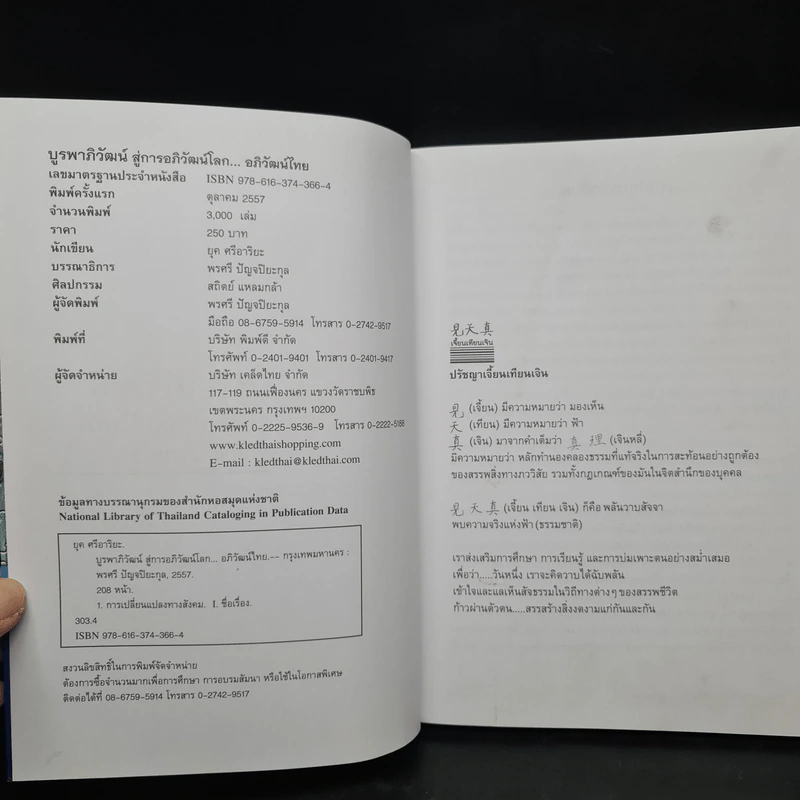 บูรพาภิวัฒน์ สู่การอภิวัฒน์โลก... อภิวัฒน์ไทย
เลขมาตรฐานประจำหนังสือ ISBN 978-616-374-366-4
พิมพ์ครั้งแรก ตุลาคม 2557
จำนวนพิมพ์ 3,000 เล่ม
ราคา 250 บาท
นักเขียน ยุค ศรีอาริยะ
บรรณาธิการ พรศรี ปัญจปิยะกุล
ศิลปกรรม สถิตย์ แหลมกล้า
ผู้จัดพิมพ์ พรศรี ปัญจปิยะกุล
มือถือ 08-6759-5914 โทรสาร 0-2742-9517
พิมพ์ที่ บริษัท พิมพ์ดี จำกัด
โทรศัพท์ 0-2401-9401 โทรสาร 0-2401-9417
ผู้จัดจำหน่าย บริษัท เคล็ดไทย จำกัด
117-119 ถนนเฟื่องนคร แขวงวัดราชบพิธ
เขตพระนคร กรุงเทพฯ 10200
โทรศัพท์ 0-2225-9536-9 โทรสาร 0-2222-5188
www.kledthaishopping.com
E-mail : kledthai@kledthai.com
ข้อมูลทางบรรณานุกรมของสำนักหอสมุดแห่งชาติ
National Library of Thailand Cataloging in Publication Data
ยุค ศรีอาริยะ.
บูรพาภิวัฒน์ สู่การอภิวัฒน์โลก... อภิวัฒน์ไทย.-- กรุงเทพมหานคร :
พรศรี ปัญจปิยะกุล, 2557.
208 หน้า.
1. การเปลี่ยนแปลงทางสังคม. I. ชื่อเรื่อง.
303.4
ISBN 978-616-374-366-4
สงวนลิขสิทธิ์ในการพิมพ์จัดจำหน่าย
ต้องการซื้อจำนวนมากเพื่อการศึกษา การอบรมสัมนา หรือใช้ในโอกาสพิเศษ
ติดต่อได้ที่ 08-6759-5914 โทรสาร 0-2742-9517
見天真
เจี้ยนเทียนเจิน
ปรัชญาเจี้ยนเทียนเจิน
見 (เจี้ยน) มีความหมายว่า มองเห็น
天 (เทียน) มีความหมายว่า ฟ้า
真 (เจิน) มาจากคำเต็มว่า 真理 (เจินหลี่)
มีความหมายว่า หลักทำนองคลองธรรมที่แท้จริงในการสะท้อนอย่างถูกต้อง
ของสรรพสิ่งทางภววิสัย รวมทั้งกฎเกณฑ์ของมันในจิตสำนึกของบุคคล
見天真 (เจี้ยน เทียน เจิน) ก็คือ พลันวาบสัจจา
พบความจริงแห่งฟ้า (ธรรมชาติ)
เราส่งเสริมการศึกษา การเรียนรู้ และการบ่มเพาะตนอย่างสม่ำเสมอ
เพื่อว่า.....วันหนึ่ง เราจะคิดวาบได้ฉับพลัน
เข้าใจและแลเห็นสัจธรรมในวิถีทางต่างๆ ของสรรพชีวิต
ก้าวผ่านตัวตน.....สรรสร้างสิ่งงดงามแก่กันและกัน